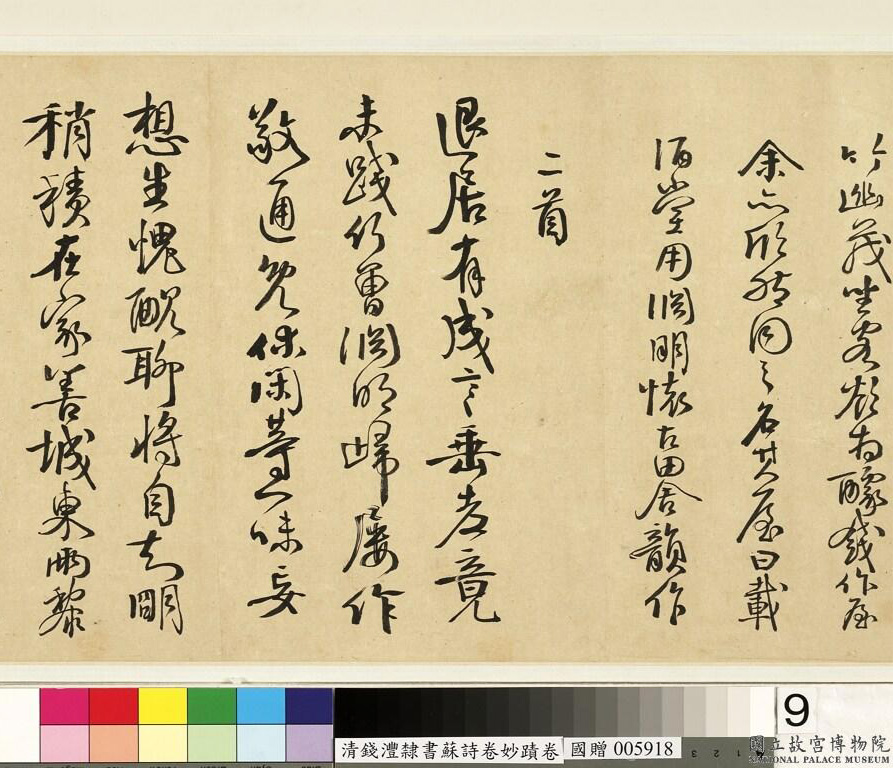 竹幽茂坐客欲為醵錢作屋
余亦欣然同之名其屋曰載
酒堂用淵明懷古田舍韻作
二首
退居有成言垂老竟
未踐何曾淵明歸屢作
敬通免休閑等一味妄
想生愧靦聊將自知明
稍積在家善城東兩黎
9
清錢灃隸書蘇詩卷妙蹟卷
國贈 005918
國立故宮博物院
NATIONAL PALACE MUSEUM